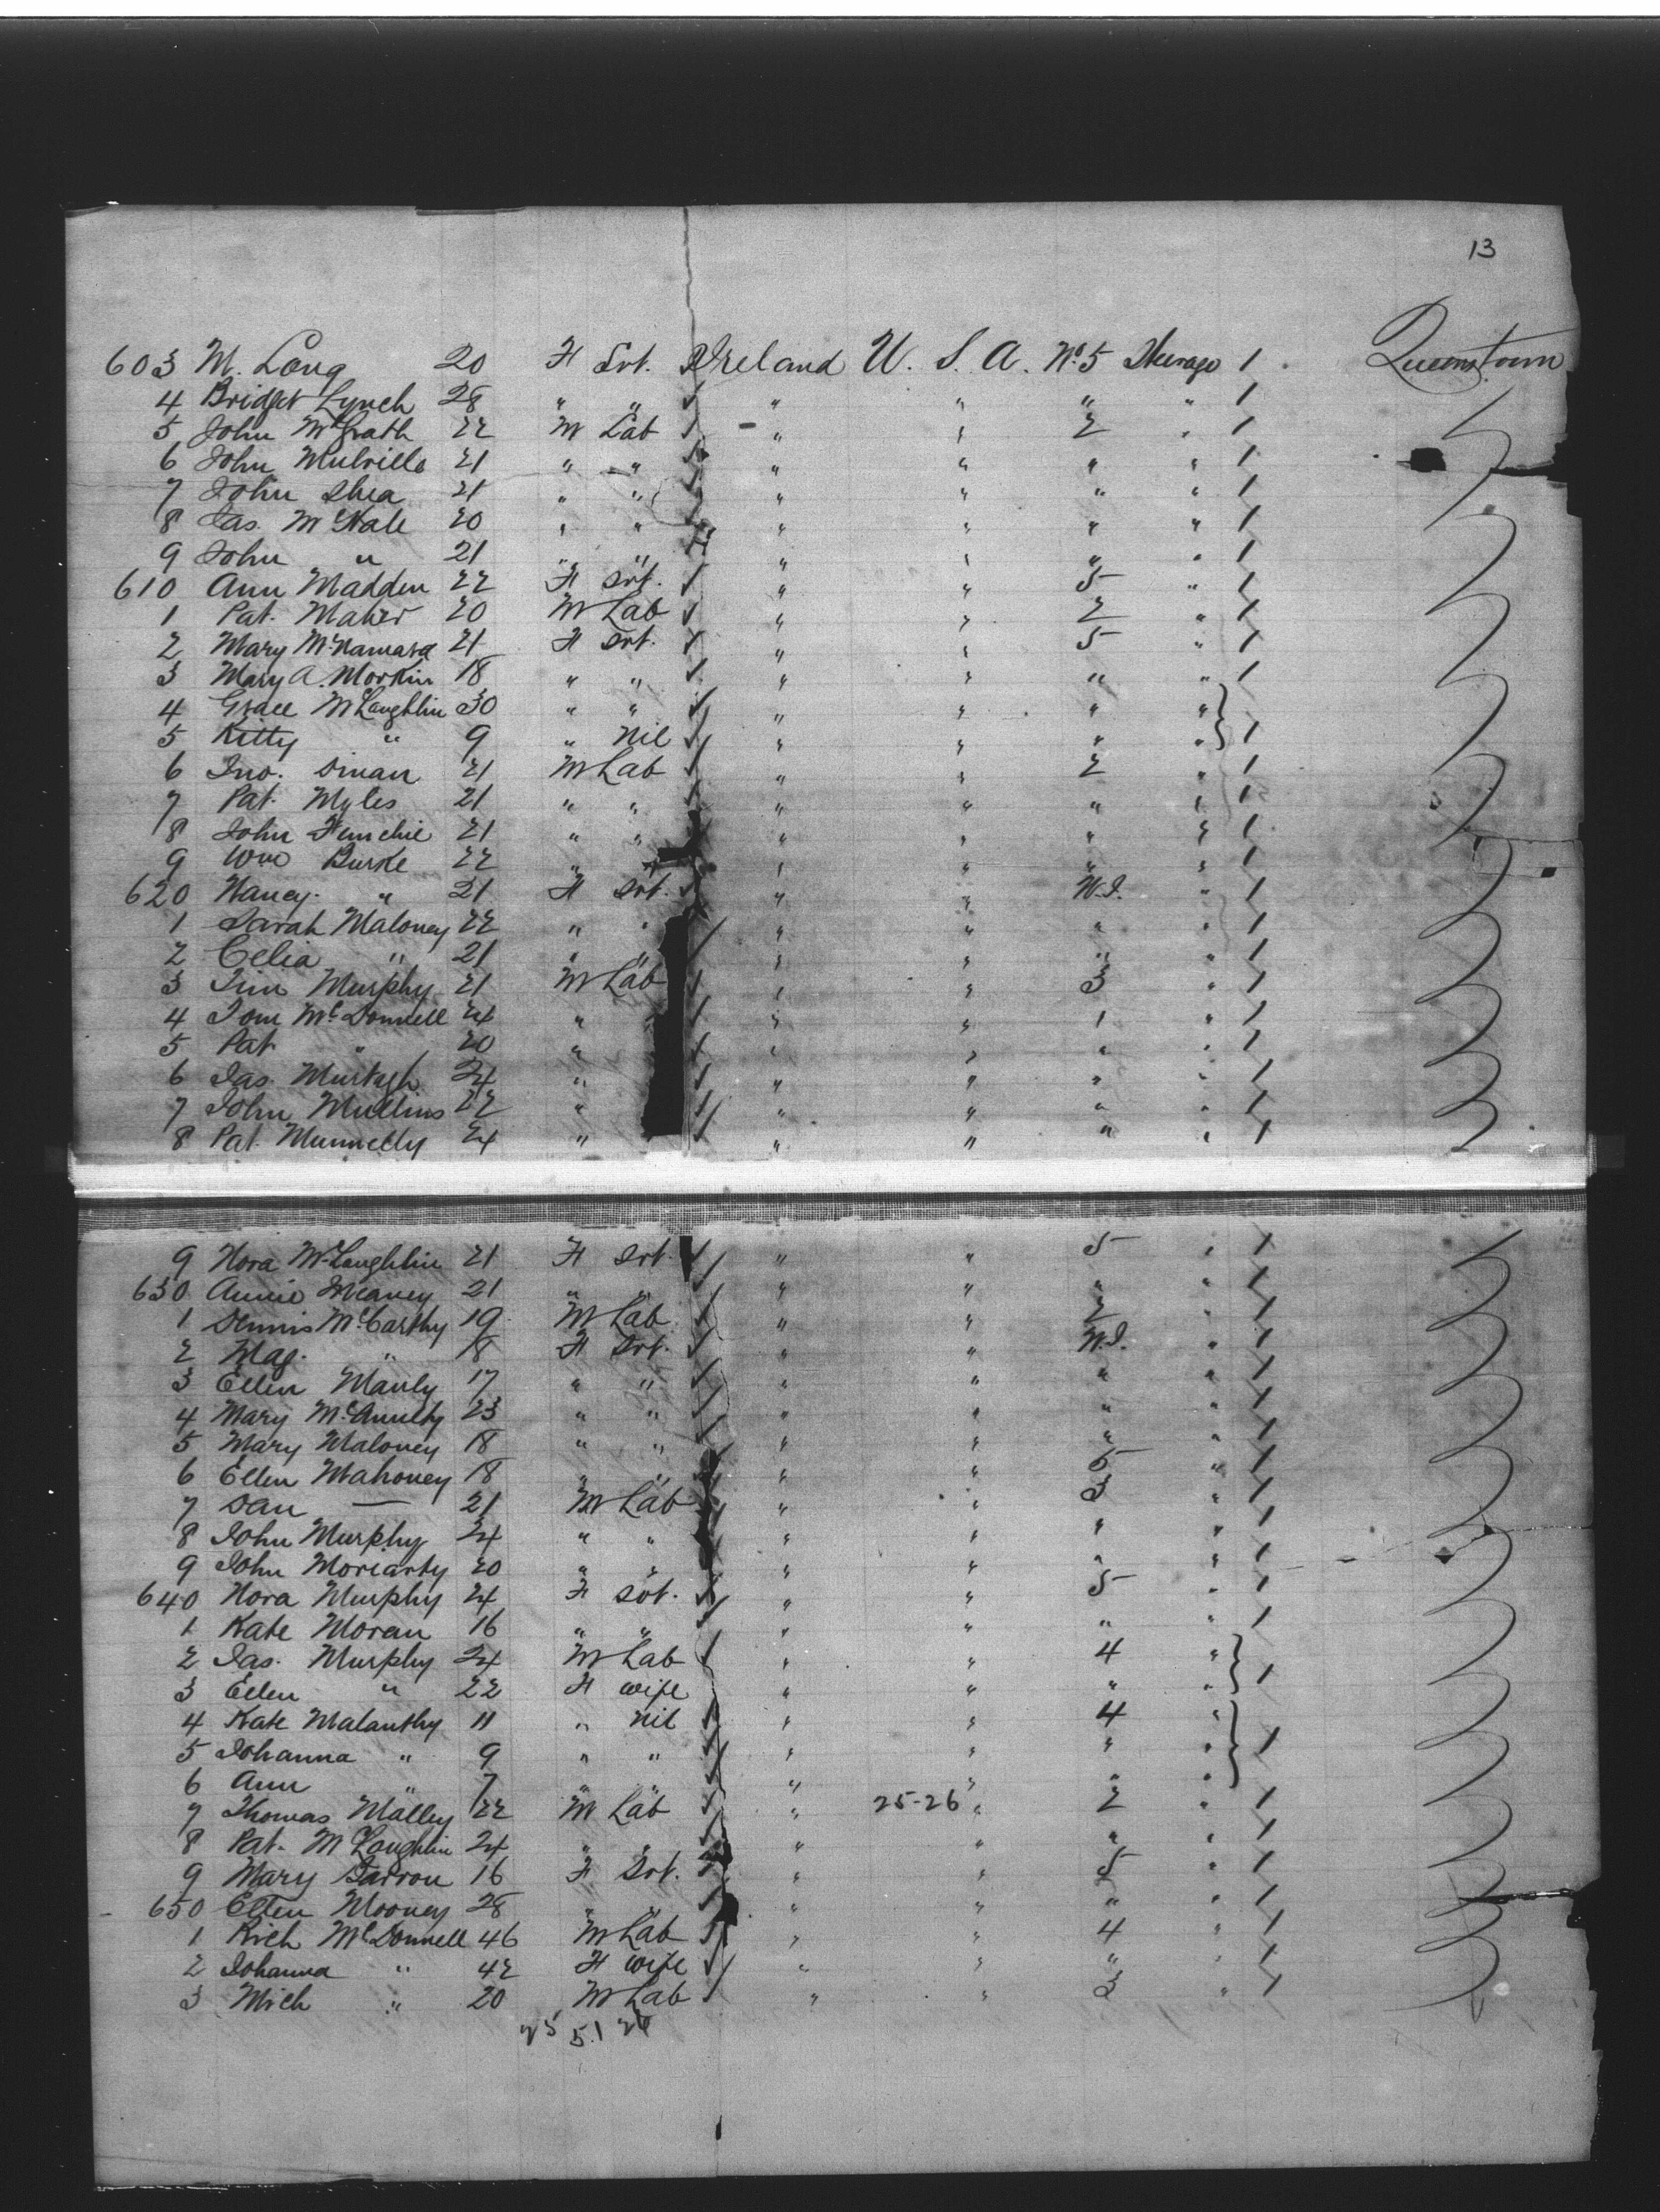 13
603 M. Long 20 F Svt. Ireland U. S. A. No. 5 Steerage 1 Queenstown
4 Bridget Lynch 28 " " " " " " 1
5 John McGrath 22 M Lab " " 2 " 1
6 John 21 " " " " " " 1
7 John Shea 21 " " " " " " 1
8 Jas. McHale 20 " " " " " " 1
9 John " 21 " " " " " " 1
610 Ann Madden 22 F Svt. " " 5 " 1
1 Pat. Maher 20 M Lab " " 2 " 1
2 Mary McNamara 21 F Svt. " " 5 " 1
3 Mary A. Morkin 18 " " " " " " 1
4 Grace McLaughlin 30 " " " " " "
5 Kitty " 9 " Nil " " " " 1
6 Jno. 21 M Lab " " 2 " 1
7 Pat. Myles 21 " " " " " " 1
8 John 21 " " " " " " 1
9 Wm Burke 22 " " " " " 1
620 Nancy. " 21 F Svt. " " " 1
1 Sarah Maloney 22 " " " " " " 1
2 Celia " 21 " " " " " " 1
3 Tim Murphy 21 M Lab " " 3 " 1
4 Tom McDonnell 24 " " " 1 " 1
5 Pat " 20 " " " " " 1
6 Jas. Murtagh 24 " " " " " 1
7 John Mullins 22 " " " " " 1
8 Pat. Munnelly 24 " " " " " 1
9 Nora McLaughlin 21 F Svt. " " 5 " 1
630 Annie Meaney 21 " " " " " " 1
1 Dennis McCarthy 19 M Lab " " 2 " 1
2 Mag. " 18 F Svt. " " " 1
3 Ellen Manly 17 " " " " " " 1
4 Mary McAnulty 23 " " " " " " 1
5 Mary Maloney 18 " " " " " " 1
6 Ellen Mahoney 18 " " " " 5 " 1
7 Dan — 21 M Lab " " 3 " 1
8 John Murphy 24 " " " " " " 1
9 John Moriarty 20 " " " " " " 1
640 Nora Murphy 24 F Svt. " " 5 " 1
1 Kate Moran 16 " " " " " " 1
2 Jas. Murphy 24 M Lab " " 4 "
3 Ellen " 22 F wife " " " " 1
4 Kate 11 " Nil " " 4 "
5 Johanna " 9 " " " " " " 1
6 Ann " 7 " " " " " "
7 Thomas Malley 22 M Lab " 25-26 " 2 " 1
8 Pat. McLoughlin 24 " " " " " " 1
9 Mary 16 F Svt. " " 5 " 1
650 Ellen Mooney 28 " " " " " " 1
1 Rich McDonnell 46 M Lab " " 4 " 1
2 Johanna " 42 F wife " " " " 1
3 Mich " 20 M Lab " " 3 " 1
25 51 26